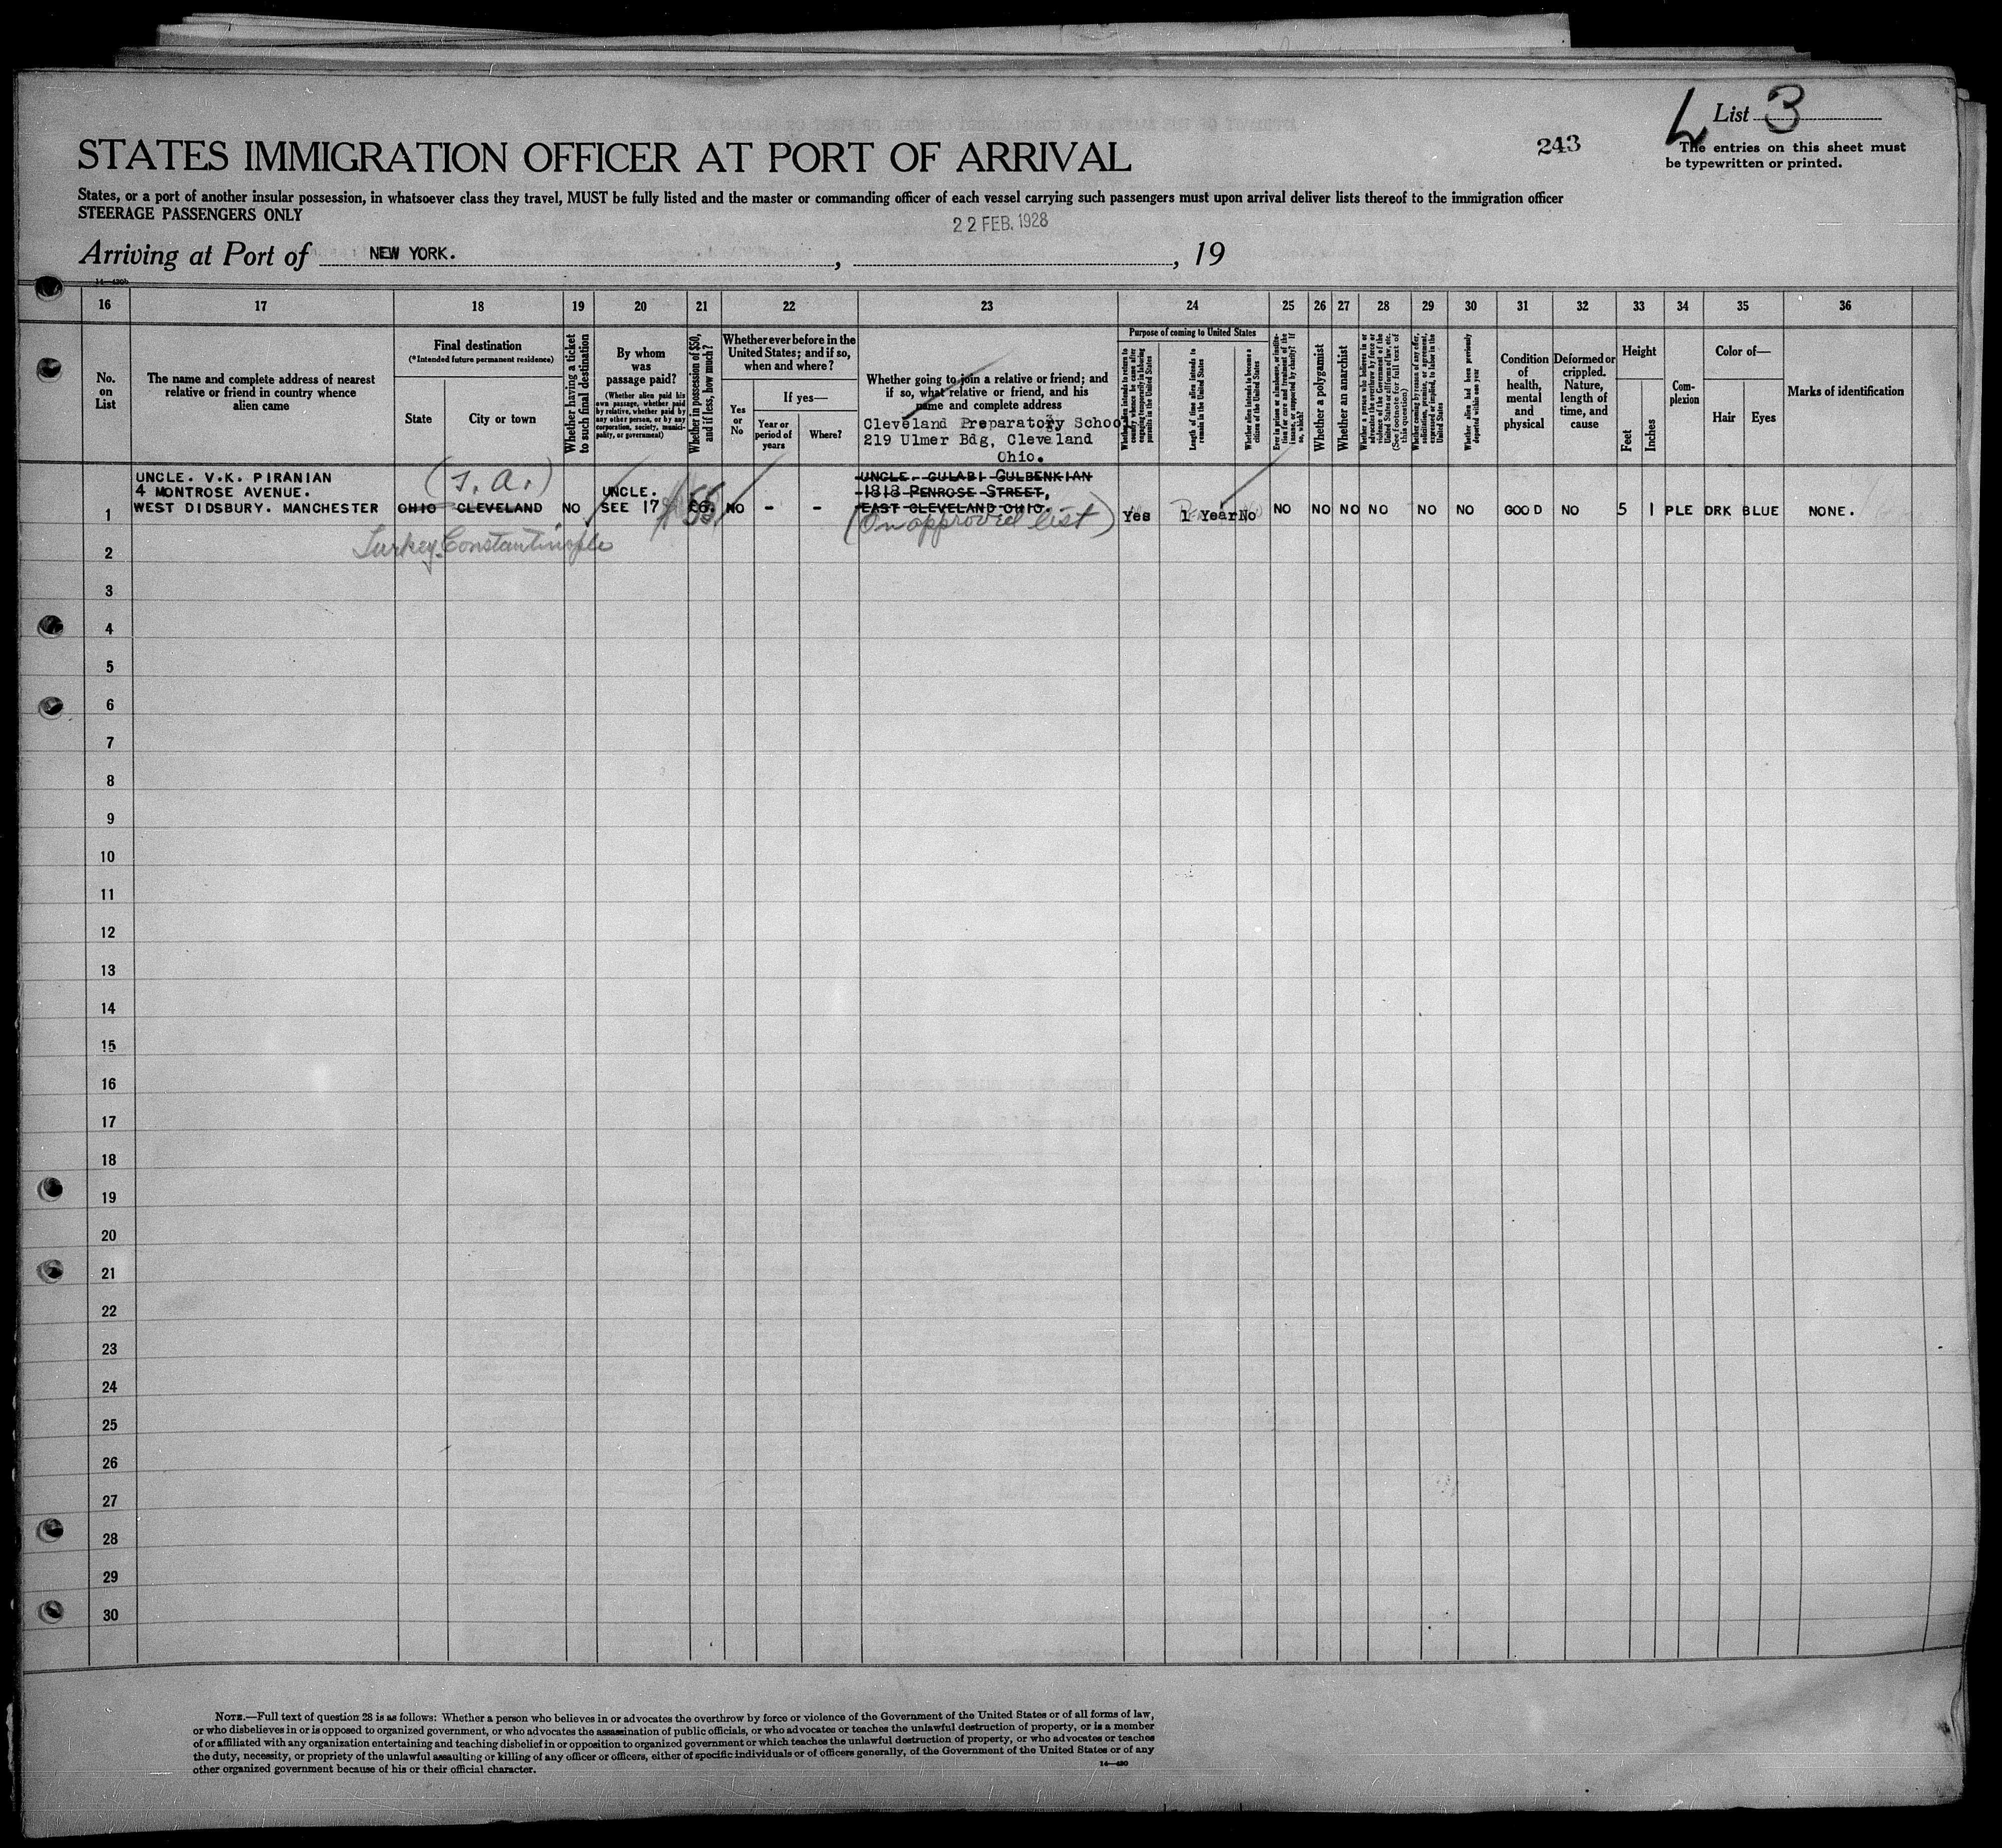 List 3
243
The entries on this sheet must
be typewritten or printed.
STATES IMMIGRATION OFFICER AT PORT OF ARRIVAL
States, or a port of another insular possession, in whatsoever class they travel, MUST be fully listed and the master or commanding officer of each vessel carrying such passengers must upon arrival deliver lists thereof to the immigration officer
STEERAGE PASSENGERS ONLY
22 FEB. 1928
Arriving at Port of NEW YORK. , , 19
16 17 18 19 20 21 22 23 24 25 26 27 28 29 30 31 32 33 34 35 36
No.
on
List
The name and complete address of nearest
relative or friend in country whence
alien came
Final destination
(*Intended future permanent residence)
State
City or town
Whether having a ticket
to such final destination
By whom
was
passage paid?
(Whether alien paid his
own passage, whether paid
by relative, whether paid by
any other person, or by any
corporation, society, munici-
pality, or government)
Whether in possession of $50,
and if less, how much?
Whether ever before in the
United States; and if so,
when and where?
Yes
or
No
If yes—
Year or
period of
years
Where?
Whether going to join a relative or friend; and
if so, what relative or friend, and his
name and complete address
Cleveland Preparatory School
219 Ulmer Bdg, Cleveland
Ohio.
Purpose of coming to United States
Whether alien intends to return to
country whence he came after
engaging temporarily in laboring
pursuits in the United States
Length of time alien intends to
remain in the United States
Whether alien intends to become a
citizen of the United States
Ever in prison or almshouse, or institu-
tion for care and treatment of the
insane, or supported by charity? If
so, which?
Whether a polygamist
Whether an anarchist
Whether a person who believes in or
advocates the overthrow by force or
violence of the Government of the
United States or all forms of law, etc.
(See footnote for full text of
this question)
Whether coming by reason of any offer,
solicitation, promise, or agreement,
expressed or implied, to labor in the
United States
Whether alien had been previously
deported within one year
Condition
of
health,
mental
and
physical
Deformed or
crippled.
Nature,
length of
time, and
cause
Height
Feet
Inches
Com-
plexion
Color of—
Hair
Eyes
Marks of identification
UNCLE. V.K. PIRANIAN
4 MONTROSE AVENUE.
WEST DIDSBURY. MANCHESTER
OHIO CLEVELAND
NO
UNCLE.
SEE 17
£6.
NO - -
UNCLE. GULABI GULBENKIAN
1818 PENROSE STREET,
EAST CLEVELAND OHIO.
(On approved list)
Yes 1 Year No NO NO NO NO NO NO GOOD NO 5 1 PLE DRK BLUE NONE.
Turkey Constantinople
1
2
3
4
5
6
7
8
9
10
11
12
13
14
15
16
17
18
19
20
21
22
23
24
25
26
27
28
29
30
NOTE.—Full text of question 28 is as follows: Whether a person who believes in or advocates the overthrow by force or violence of the Government of the United States or of all forms of law,
or who disbelieves in or is opposed to organized government, or who advocates the assassination of public officials, or who advocates or teaches the unlawful destruction of property, or is a member
of or affiliated with any organization entertaining and teaching disbelief in or opposition to organized government or which teaches the unlawful destruction of property, or who advocates or teaches
the duty, necessity, or propriety of the unlawful assaulting or killing of any officer or officers, either of specific individuals or of officers generally, of the Government of the United States or of any
other organized government because of his or their official character.
14—430